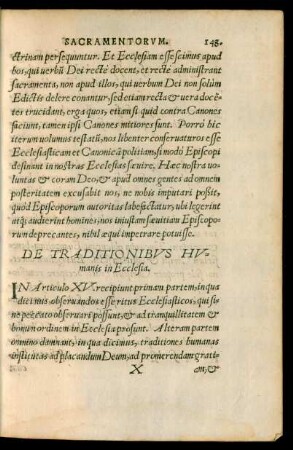 SACRAMENTORVM. 148.
ctrinam persequuntur. Et Ecclesiam esse scimus apud
hos, qui uerbũ Dei rectè docent, et rectè administrant
sacramenta, non apud illos, qui uerbum Dei non solùm
Edictis delere conantur, sed etiam recta & uera docẽ
tes trucidant, erga quos, etiam si quid contra Canones
faciunt, tamen ipsi Canones mitiores sunt. Porrò hîc
iterum uolumus testatũ, nos libenter conseruaturos esse
Ecclesiasticam et Canonicã politiam, si modò Episcopi
desinant in nostras Ecclesias sæuire. Hæc nostra uo
luntas & coram Deo, & apud omnes gentes ad omnem
posteritatem excusabit nos, ne nobis imputari possit,
quòd Episcoporum autoritas labefactatur, ubi legerint
atq; audierint homines, nos iniustam sæuitiam Episcopo
rum deprecantes, nihil æqui impetrare potuisse.
DE TRADITIONIBVS HV
manis in Ecclesia.
IN Articulo XV. recipiunt primam partem, in qua
dicimus obseruandos esse ritus Ecclesiasticos, qui si-
ne peccato obseruari possunt, & ad tranquillitatem &
bonum ordinem in Ecclesia prosunt. Alteram partem
omnino damnant, in qua dicimus, traditiones humanas
institutas ad placandum Deum, ad promerendam grati-
X am, &